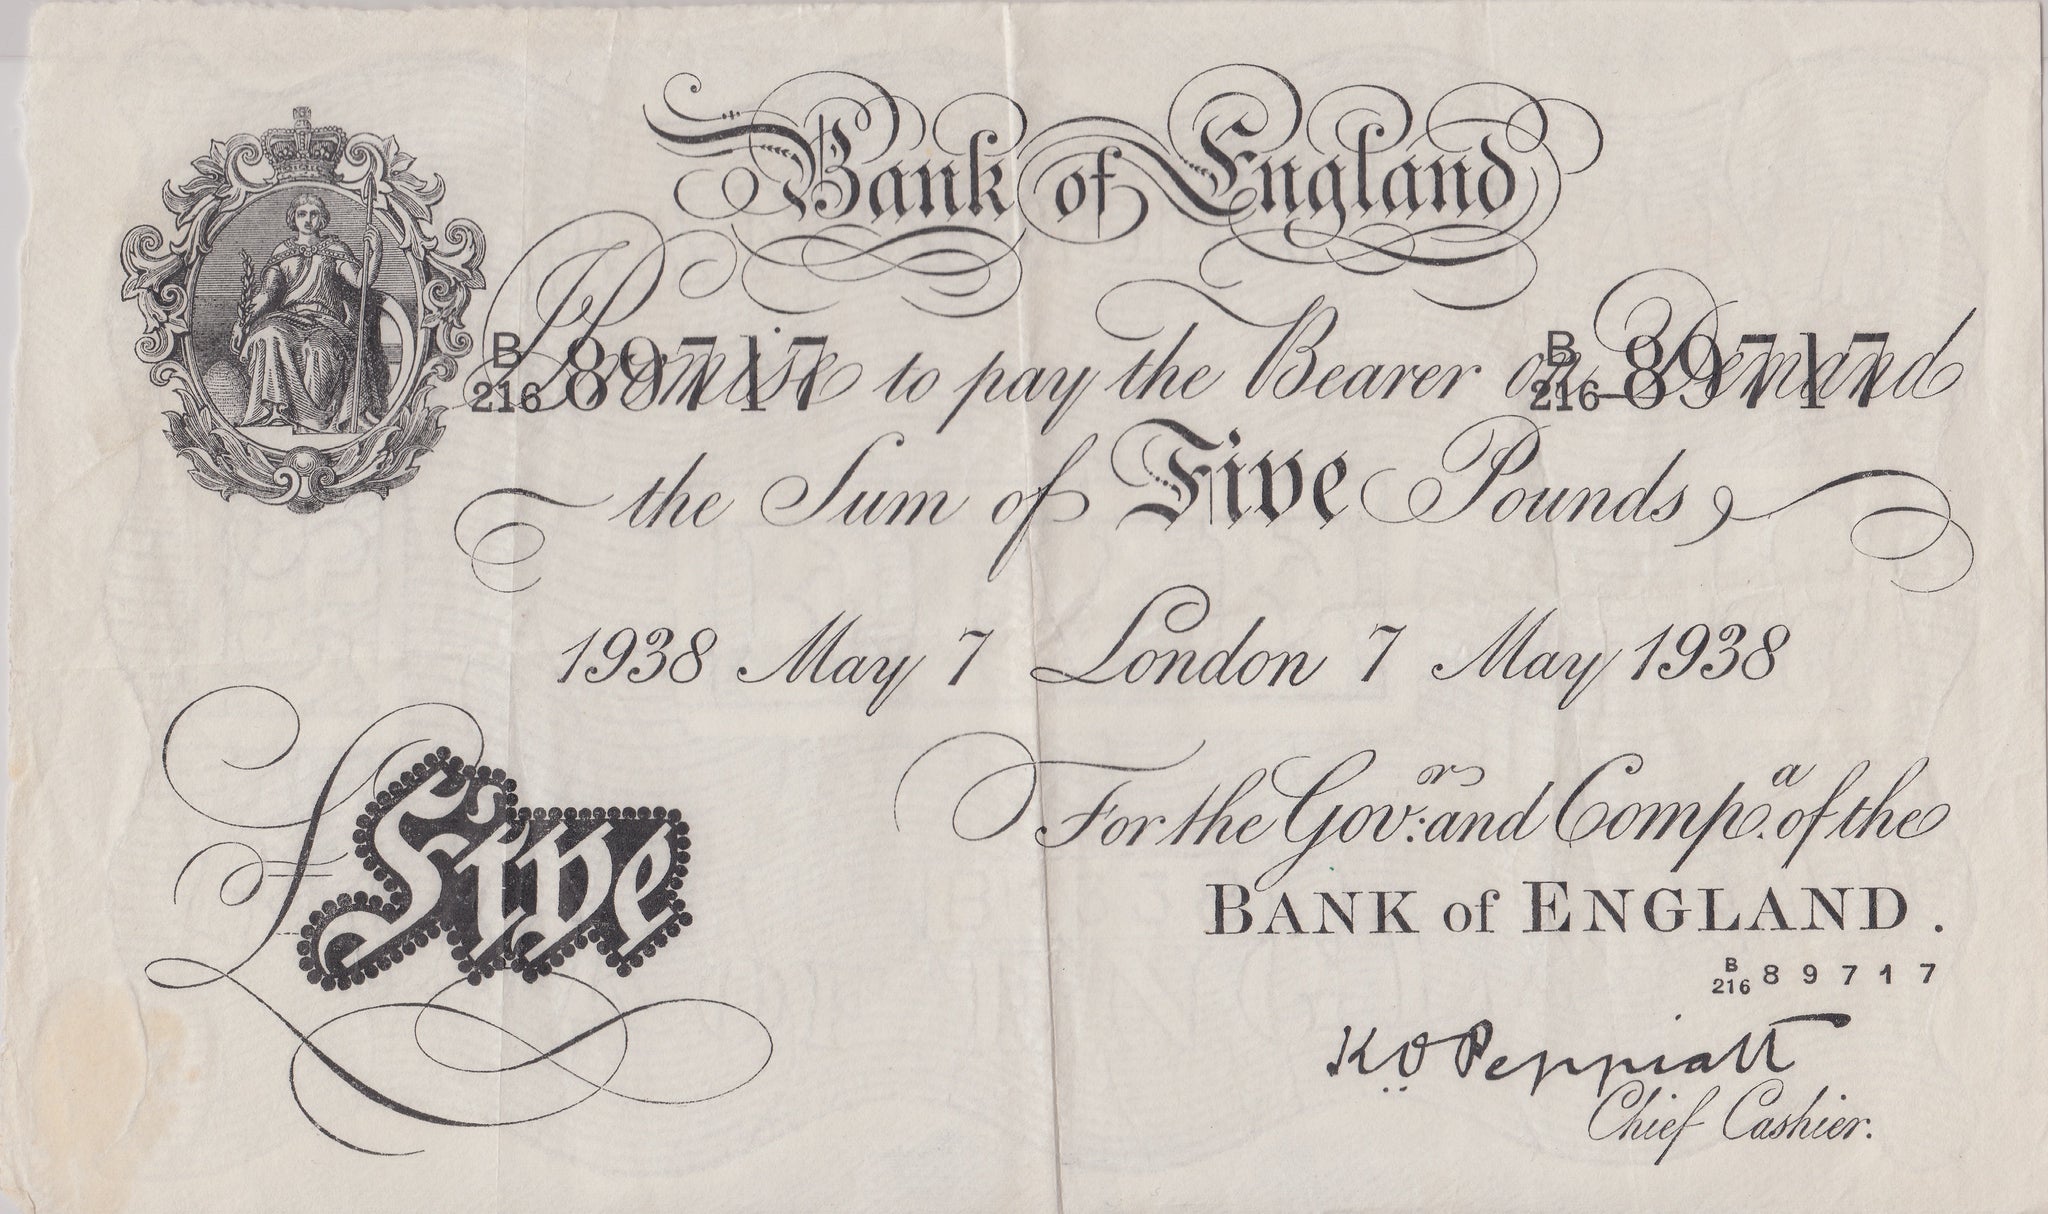 Bank of England
I Promise to pay the Bearer on Demand
B
216 89717
B
216 89717
the Sum of Five Pounds
1938 May 7 London 7 May 1938
For the Gov:or and Comp.a of the
BANK of ENGLAND.
£Five
B
216 89717
K O Peppiatt
Chief Cashier.